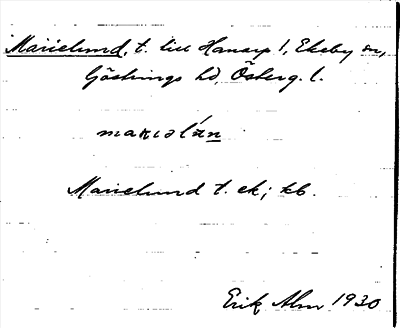 Marielund, t. till Hanorp 1, Ekeby sn,
Göstrings hd, Österg. l.
maʀıəlán
Marielund t. ek; kb.
Erik Alm 1930